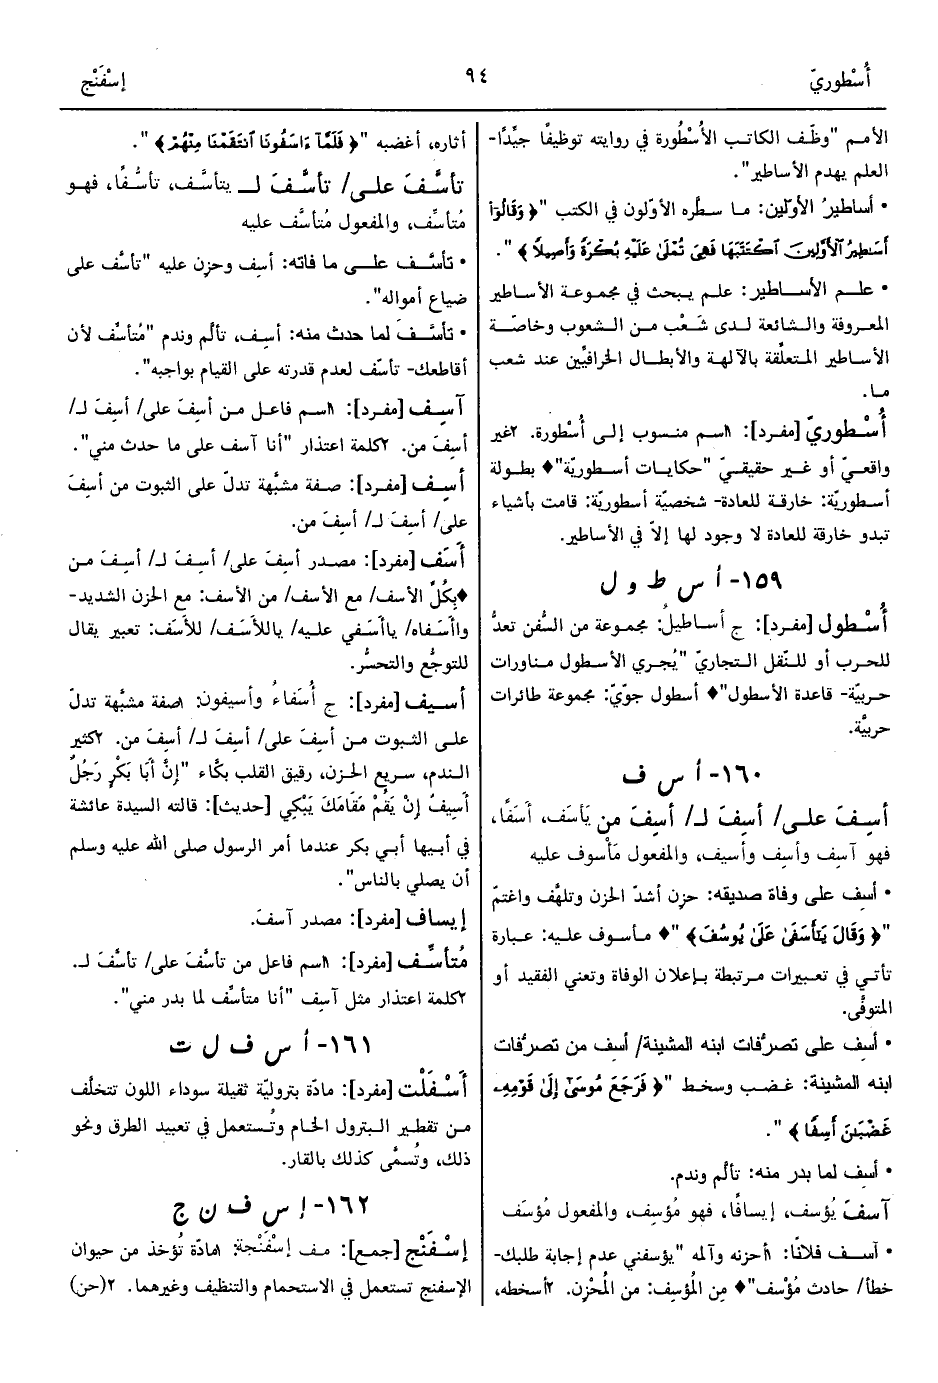 أُسْطوريّ
٩٤
إسْفَنْج
الأمم "وظّف الكاتب الأُسْطورة في روايته توظيفًا جيِّدًا-
العلم يهدم الأساطير".
• أساطيرُ الأوّلين: ما سطره الأوّلون في الكتب "﴿ وَقَالُوٓا۟
أَسَٰطِيرُ ٱلْأَوَّلِينَ ٱكْتَتَبَهَا فَهِىَ تُمْلَىٰ عَلَيْهِ بُكْرَةً وَأَصِيلًا ﴾ ".
• علم الأساطير: علم يبحث في مجموعة الأساطير
المعروفة والشائعة لدى شَعْب من الشعوب وخاصّة
الأساطير المتعلِّقة بالآلهة والأبطال الخرافيِّين عند شعب
ما.
أُسْطوريّ [مفرد]: ١اسم منسوب إلى أُسْطورة. ٢غير
واقعيّ أو غير حقيقيّ "حكايات أسطوريّة"♦ بطولة
أسطوريّة: خارقة للعادة- شخصيّة أسطوريّة: قامت بأشياء
تبدو خارقة للعادة لا وجود لها إلاّ في الأساطير.
١٥٩- أ س ط و ل
أُسْطول [مفرد]: ج أساطيلُ: مجموعة من السُّفن تعدُّ
للحرب أو للنّقل التجاريّ "يُجري الأسطول مناورات
حربيّة- قاعدة الأسطول"♦ أسطول جوّيّ: مجموعة طائرات
حربيَّة.
١٦٠- أ س ف
أسِفَ على/ أسِفَ لـ/ أسِفَ من يَأسَف، أسَفًا،
فهو آسِف وأسِف وأسيف، والمفعول مَأْسوف عليه
• أسِف على وفاة صديقه: حزن أشدّ الحزن وتلهَّف واغتمّ
"﴿ وَقَالَ يَٰٓأَسَفَىٰ عَلَىٰ يُوسُفَ ﴾ "♦ مأسوف عليه: عبارة
تأتي في تعبيرات مرتبطة بإعلان الوفاة وتعني الفقيد أو
المتوفَّى.
• أسِف على تصرُّفات ابنه المشينة/ أسف من تصرُّفات
ابنه المشينة: غضب وسخط "﴿ فَرَجَعَ مُوسَىٰٓ إِلَىٰ قَوْمِهِۦ
غَضْبَٰنَ أَسِفًا ﴾ ".
• أسِف لما بدر منه: تألّم وندم.
آسفَ يُؤسف، إيسافًا، فهو مُؤسِف، والمفعول مُؤسَف
• آسف فلانًا: ١أحزنه وآلمه "يؤسفني عدم إجابة طلبك-
خطأ/ حادث مُؤْسف"♦ مِن المُؤسِف: من المُحْزِن. ٢أسخطه،
أثاره، أغضبه "﴿ فَلَمَّآ ءَاسَفُونَا ٱنتَقَمْنَا مِنْهُمْ ﴾ ".
تأسَّفَ على/ تأسَّفَ لـ يتأسَّف، تأسُّفًا، فهو
مُتأسِّف، والمفعول مُتأسَّف عليه
• تأسَّف على ما فاته: أسِف وحزن عليه "تأسَّف على
ضياع أمواله".
• تأسَّفَ لما حدث منه: أسِف، تألّم وندم "مُتأسِّف لأن
أقاطعك- تأسّف لعدم قدرته على القيام بواجبه".
آسِف [مفرد]: ١اسم فاعل من أسِفَ على/ أسِفَ لـ/
أسِفَ من. ٢كلمة اعتذار "أنا آسف على ما حدث مني".
أَسِف [مفرد]: صفة مشبَّهة تدلّ على الثبوت من أسِفَ
على/ أسِفَ لـ/ أسِفَ من.
أَسَف [مفرد]: مصدر أسِفَ على/ أسِفَ لـ/ أسِفَ من
♦بِكُلِّ الأسف/ مع الأسف/ من الأسف: مع الحزن الشديد-
واأسَفاه/ ياأسَفي عليه/ ياللأسَف/ للأسَف: تعبير يقال
للتوجُّع والتحسُّر.
أسيف [مفرد]: ج أُسَفاءُ وأسيفون: ١صفة مشبَّهة تدلّ
على الثبوت من أسِفَ على/ أسِفَ لـ/ أسِفَ من. ٢كثير
الندم، سريع الحزن، رقيق القلب بكَّاء "إِنَّ أَبَا بَكْرٍ رَجُلٌ
أَسِيفٌ إِنْ يَقُمْ مَقَامَكَ يَبْكِي [حديث]: قالته السيدة عائشة
في أبيها أبي بكر عندما أمر الرسول صلى الله عليه وسلم
أن يصلي بالناس".
إيساف [مفرد]: مصدر آسفَ.
مُتأسِّف [مفرد]: ١اسم فاعل من تأسَّفَ على/ تأسَّفَ لـ.
٢كلمة اعتذار مثل آسِف "أنا متأسِّف لما بدر مني".
١٦١- أ س ف ل ت
أَسْفَلْت [مفرد]: مادّة بتروليّة ثقيلة سوداء اللون تتخلَّف
من تقطير البترول الخام وتُستعمل في تعبيد الطرق ونحو
ذلك، وتُسمَّى كذلك بالقار.
١٦٢- إ س ف ن ج
إسْفَنْج [جمع]: مف إسْفَنْجة: ١مادّة تُؤخذ من حيوان
الإسفنج تستعمل في الاستحمام والتنظيف وغيرهما. ٢(حن)